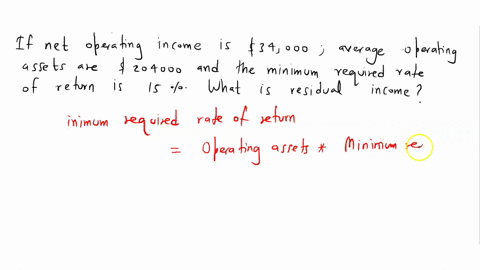 If net operating income is $34,000 ; average operating
assets are $204000 and the minimum required rate
of return is 15%. What is residual income?
inimum required rate of return
= Operating assets * Minimum re